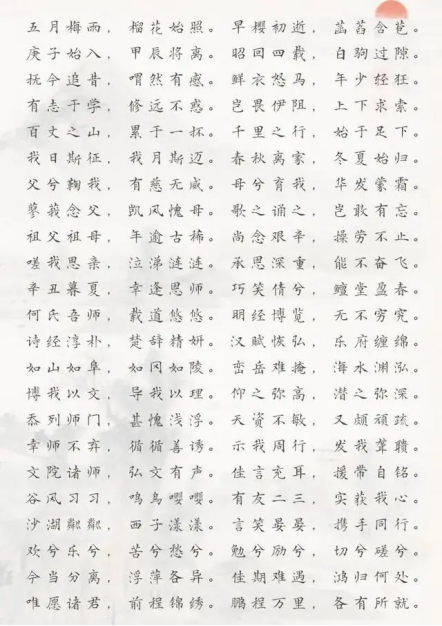 五月梅雨，榴花始照。早樱初逝，菡萏含苞。
庚子始入，甲辰将离。昭回四载，白驹过隙。
抚今追昔，喟然有感。鲜衣怒马，年少轻狂。
有志于学，修远不惑。岂畏伊阻，上下求索。
百丈之山，累于一抔。千里之行，始于足下。
我日斯征，我月斯迈。春秋离家，冬夏始归。
父兮鞠我，有慈无威。母兮育我，华发蒙霜。
蓼莪念父，凯风愧母。歌之诵之，岂敢有忘。
祖父祖母，年逾古稀。尚念艰辛，操劳不止。
嗟我思亲，泣涕涟涟。承恩深重，能不奋飞。
辛丑暮夏，幸逢恩师。巧笑倩兮，鳣堂盈春。
何氏吾师，载道悠悠。明经博览，无不穷究。
诗经淳朴，楚辞精妍。汉赋恢弘，乐府缠绵。
如山如阜，如冈如陵。峦岳难掩，海水渊泓。
博我以文，导我以理。仰之弥高，潜之弥深。
忝列师门，甚愧浅浮。天资不敏，又颇顽孩。
幸师不弃，循循善诱。示我周行，发我聋聩。
文院诸师，弘文有声。佳言充耳，援带自铭。
谷风习习，鸣鸟嘤嘤。有友二三，实获我心。
沙湖粼粼，西子漾漾。言笑晏晏，携手同行。
欢兮乐兮，苦兮愁兮。勉兮励兮，切兮磋兮。
今当分离，浮萍各异。佳期难遇，鸿归何处。
唯愿诸君，前程锦绣。鹏程万里，各有所就。